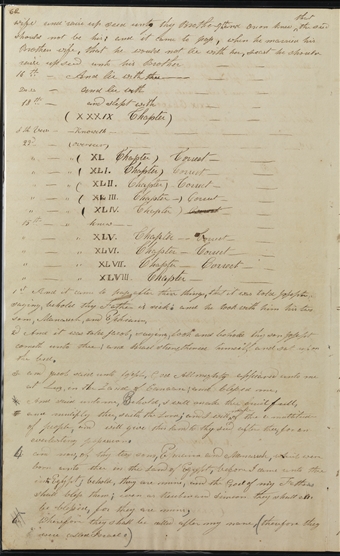 62
wife and raise up seed unto thy Brother and Onan knew that the seed
should not be his; and it came to pass, when he married his
Brothers wife, that he would not lie with her, lest he should
raise up seed unto his Brother
16th — And lie with thee
lie with
18th — and slept with
(XXXIX Chapter)
Knoweth —
22d — (overseer)
" — " (XL. Chapter) Correct —
" — " (XLI. Chapter) Correct —
" — " (XLII. Chapter) Correct —
" — " (XLIII. Chapter — Correct —
" — " (XLIV. Chapter) Correct —
15th — " knew —
" — " XLV. Chapter — Correct —
" — " XLVI. Chapter — Correct —
" — " XLVII. Chapter — Correct —
" — " XLVIII. Chapter —
1st And it came to pass after these things, that it was told Joseph,
saying, behold thy Father is sick; and he took with him his two
sons, Manasseh, and Ephraim,
2 And it was told Jacob, saying, look and behold thy son Joseph
cometh unto thee; and Israel strengthened himself and sat upon
the bed,
3 and Jacob said unto Joseph, God Allmighty appeared unto me
at Luz, in the Land of Canaan, and blessed me,
4 And said unto me, Behold, I will make thee fruitfull,
and multiply thee, saith the Lord; and I will make of thee a multitude
of people, and will give this land to thy seed after thee, for an
everlasting possession
5 and now, of thy two sons, Ephraim and Manasseh, who were
born unto thee in the land of Egypt, before I came unto thee
into Egypt; behold, they are mine, and the God of my Fathers
shall bless them; even as Reuben and Simeon they shall
be blessed, for they are mine;
6 Wherefore they shall be called after my name (therefore they
were called Israel)